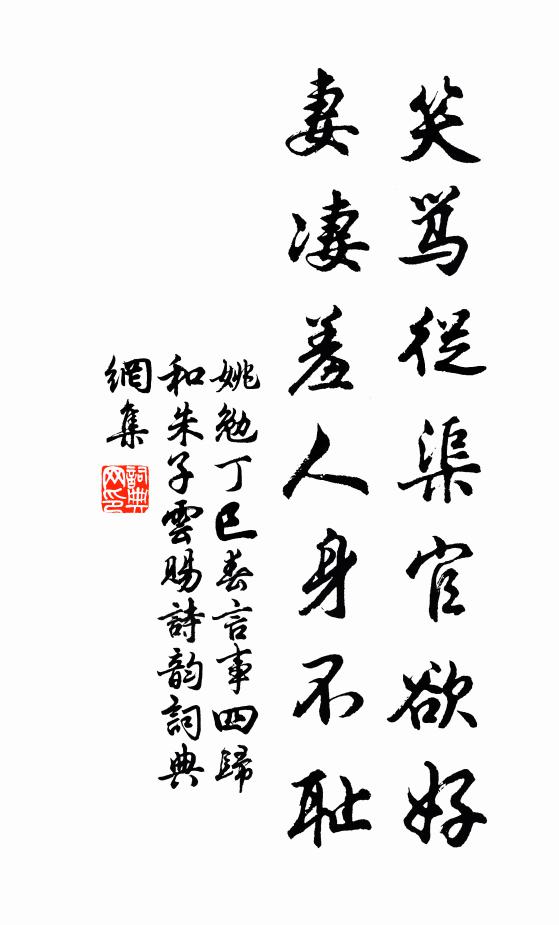 笑骂從渠官欲好
妻凄羞人身不耻
姚勉丁巳春言事四歸
和朱子雲賜詩韵詞典
網集
詞典網印